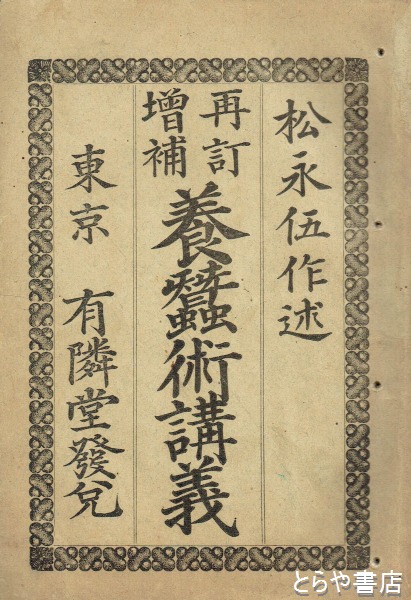 松永伍作述
再訂
增補
養蠶術講義
東京 有隣堂發兌
とらや書店